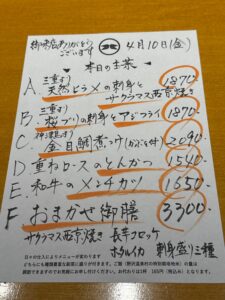 御来店ありがとう
ございます
4月10日(金)
本日の主菜
A. 三重すり
天然ヒラメの刺身と
サクラマス西京焼き 1870
B. 三重すり
桜ブリの刺身とアジフライ 1870
C. 神津島すり
金目鯛煮つけ(おざら付) 2090
D. 重ねロースのとんかつ 1540
E. 和牛のメンチカツ 1650
F おまかせ御膳 3300
サクラマス西京焼き 長芋コロッケ
ホタルイカ 刺身盛り三種
日々の仕入によりメニューが変わります